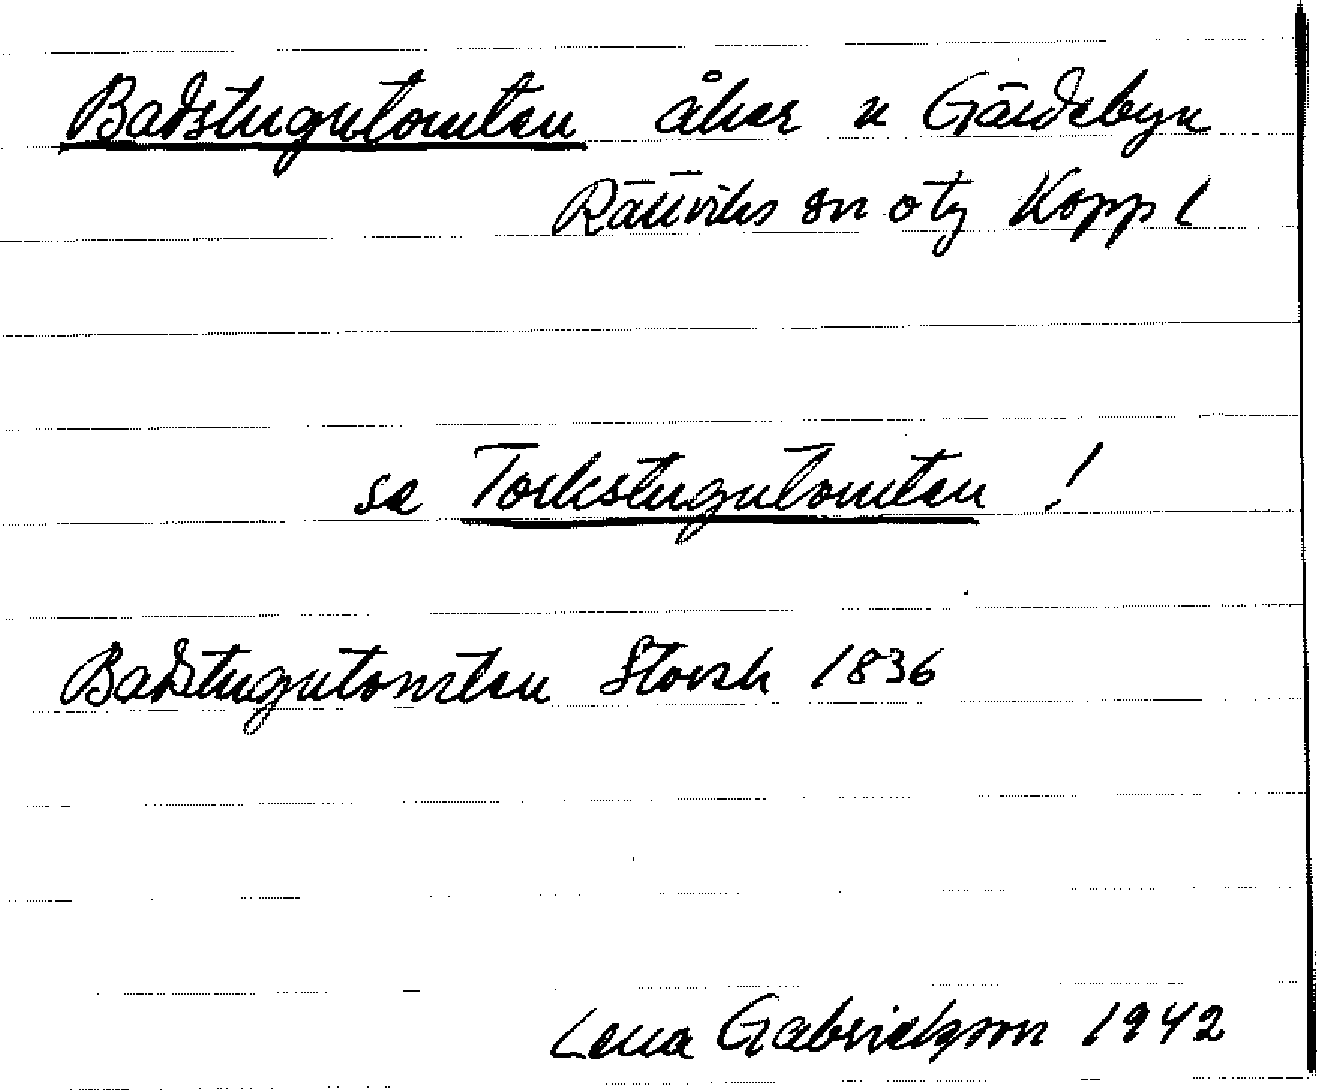 Badstugutomten åker n Gärdebyn
Rättviks sn o tg Kopp l
se Torkstugutomten !
Badstugutomten Storsk 1836
Lena Gabrielsson 1942